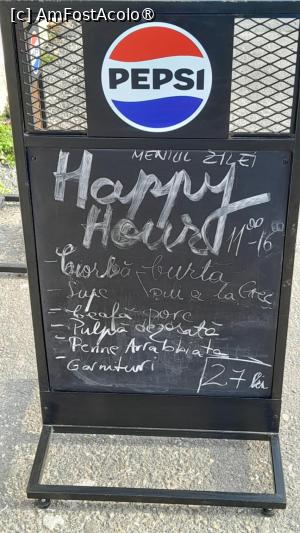 [c] AmFostAcolo®
PEPSI
MENIUL ZILEI
Happy
Hours
11⁰⁰-16⁰⁰
- Ciorbă-burta
- Supe pui a la Grec
- Ceafă porc
- Pulpă dezosată
- Penne Arrabbiata
- Garnituri
27 lei